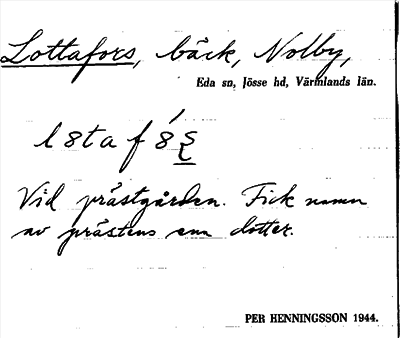 Lottafors, bäck, Nolby,
Eda sn, Jösse hd, Värmlands län.
Vid prästgården. Fick namn
av prästens ena dotter.
PER HENNINGSSON 1944.